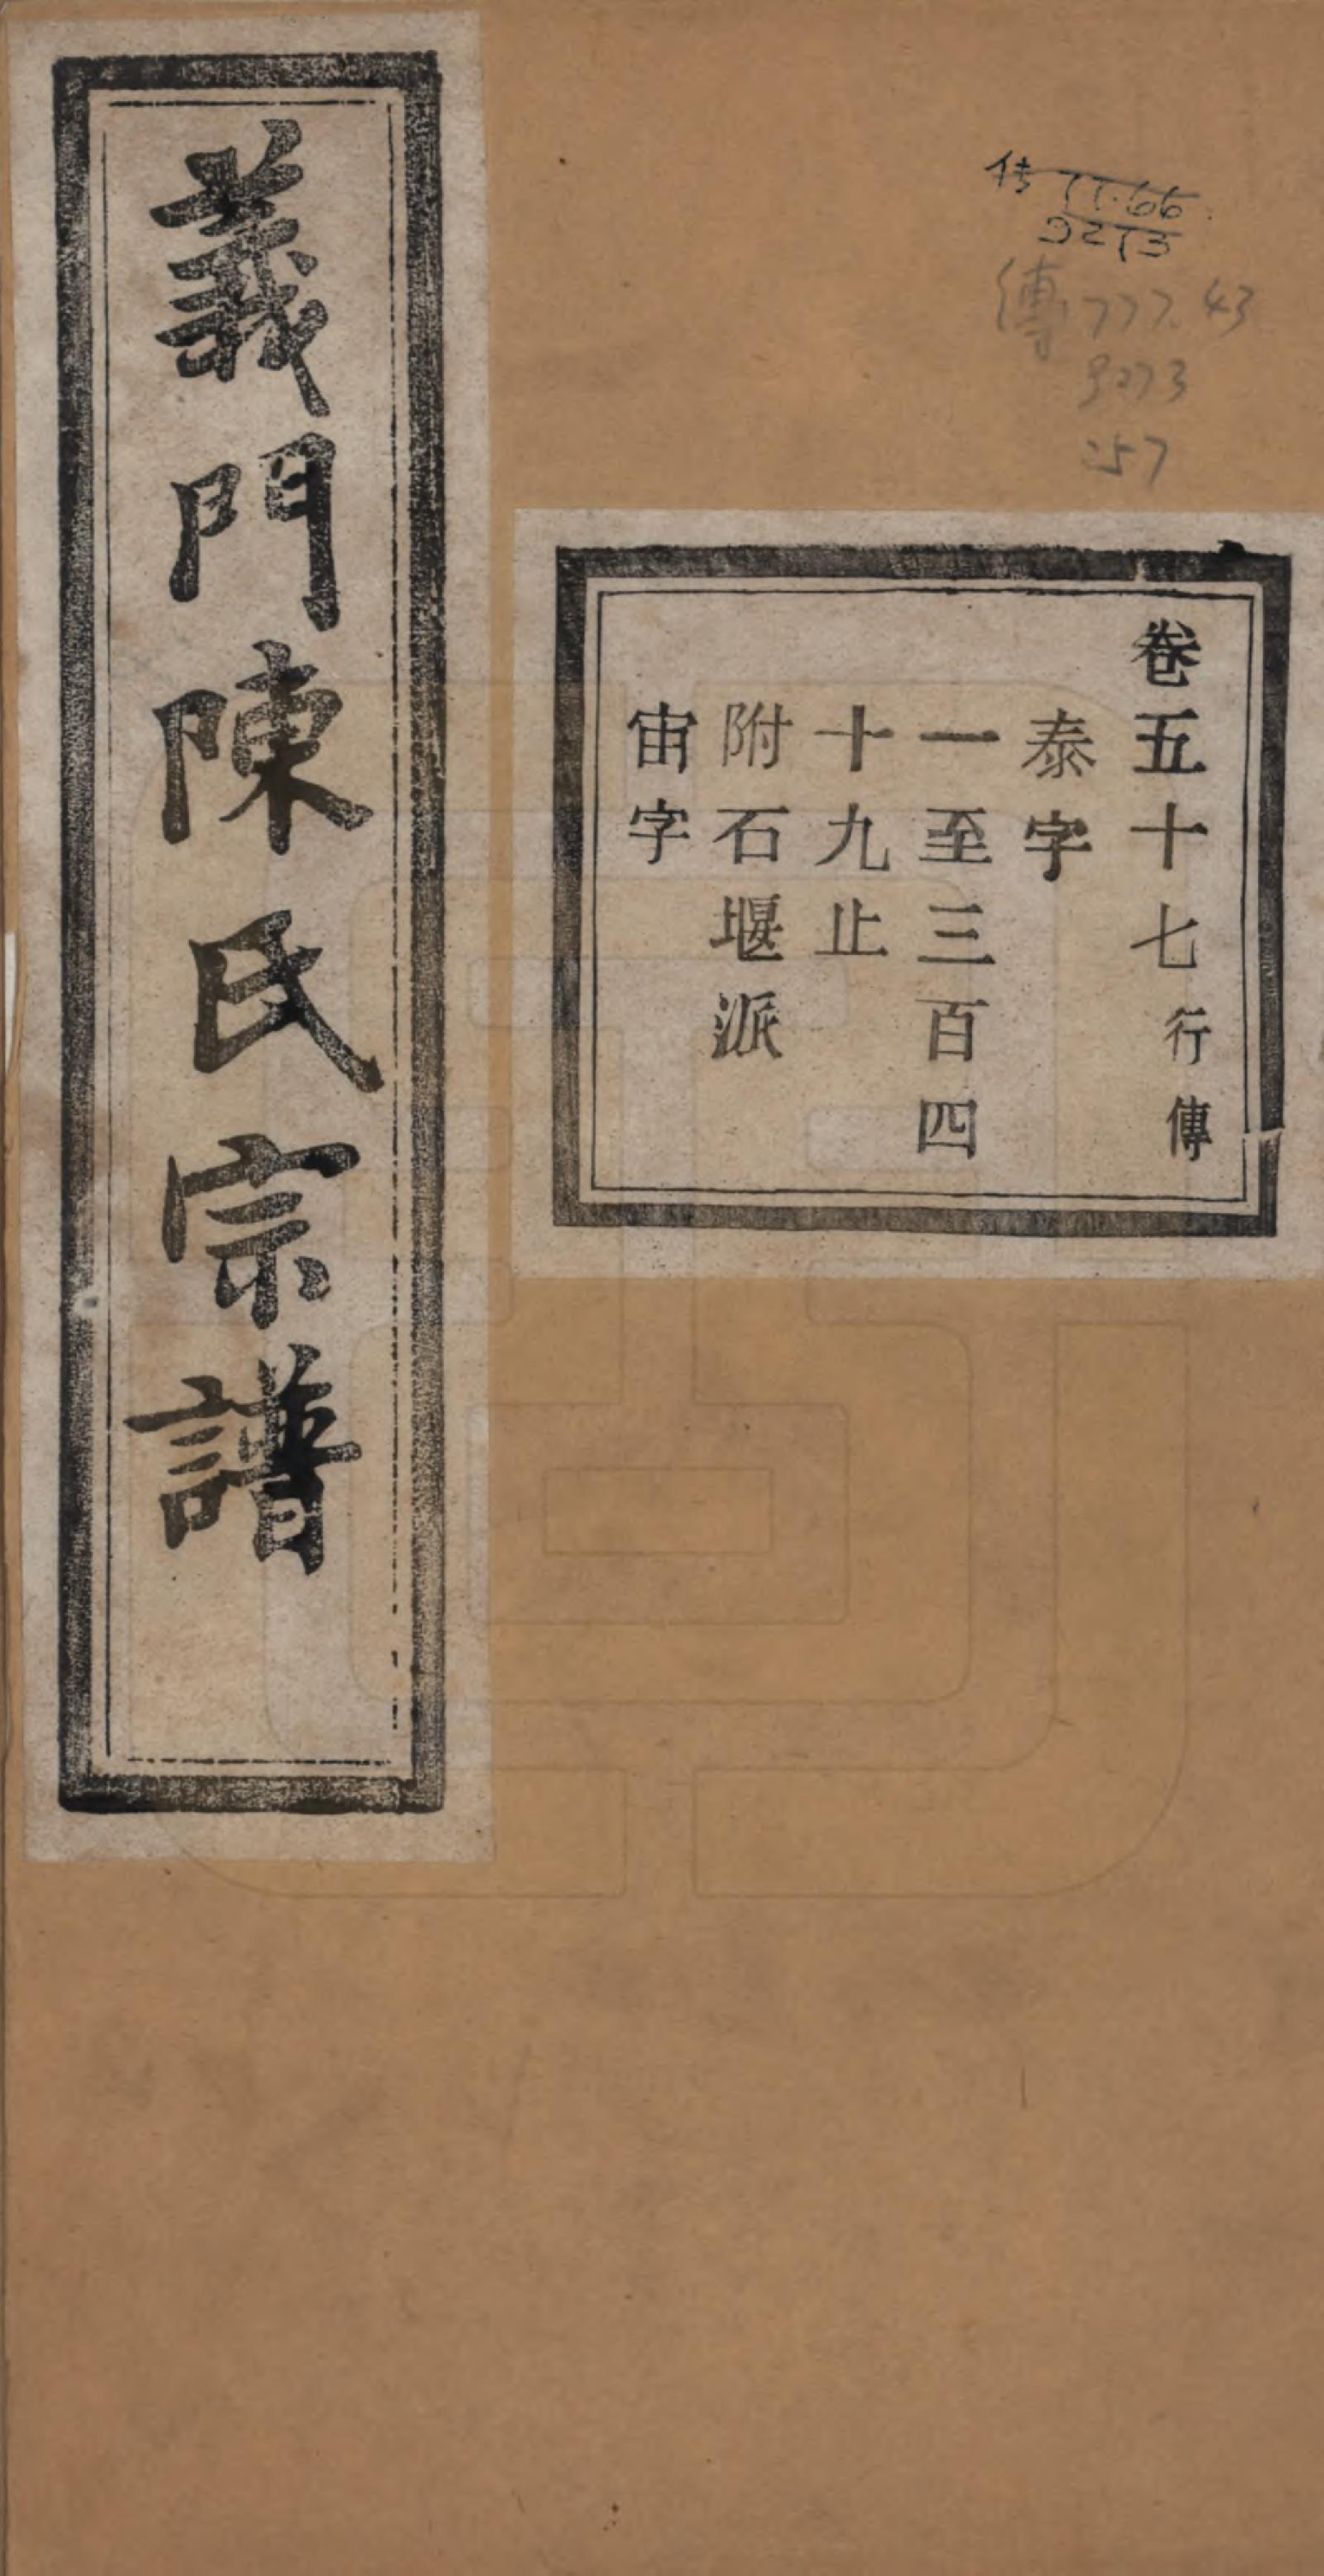 義門陳氏宗譜
卷五十七行傳
泰字
一至三百四
十九止
附石堰派
宙字
傳777.43
9273
257